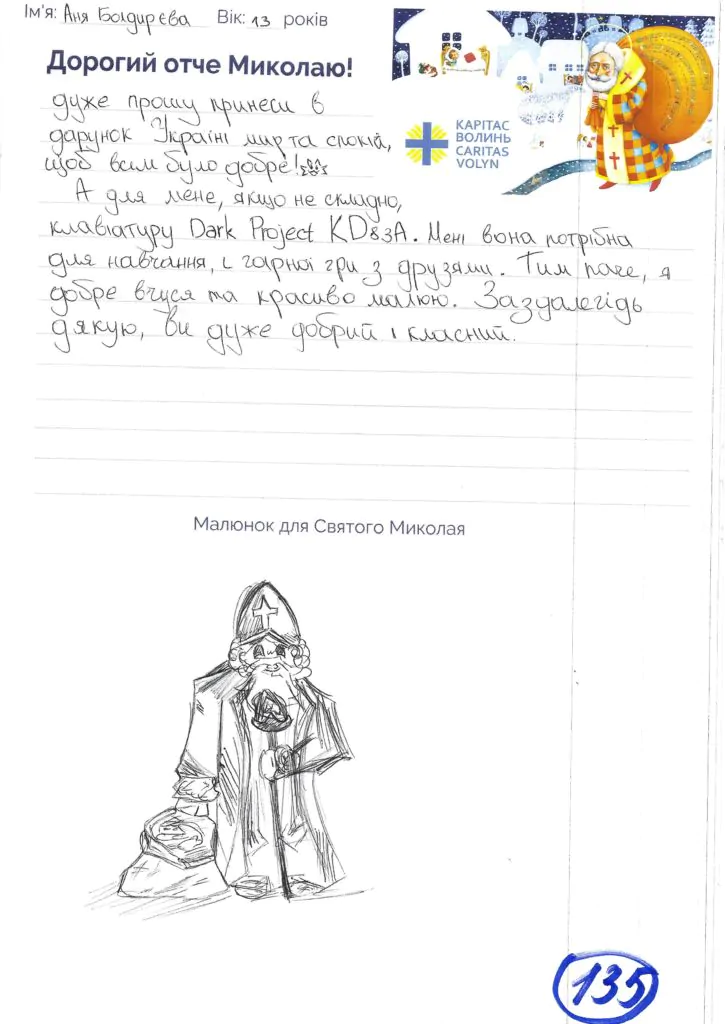 Ім'я: Аня Болдирєва Вік: 13 років
Дорогий отче Миколаю!
дуже прошу принеси в
дарунок Україні мир та спокій,
щоб всім було добре!
А для мене, якщо не складно,
клавіатуру Dark Project KD83A. Мені вона потрібна
для навчання, і гарної гри з друзями. Тим паче, я
добре вчуся та красиво малюю. Заздалегідь
дякую, Ви дуже добрий і класний.
КАРІТАС
ВОЛИНЬ
CARITAS
VOLYN
Малюнок для Святого Миколая
135